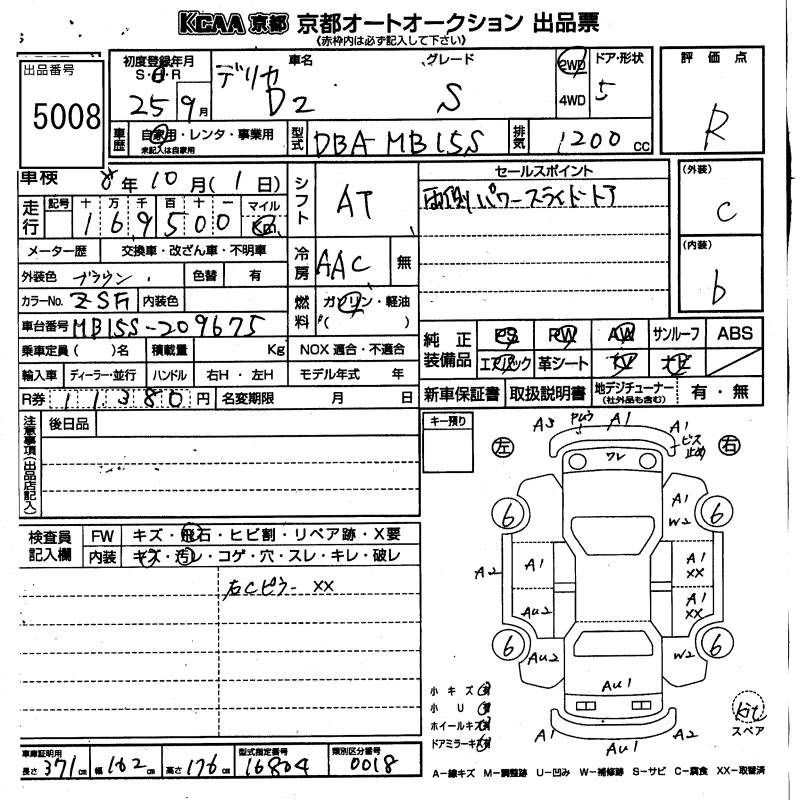 KCAA 京都 京都オートオークション 出品票
(赤枠内は必ず記入して下さい)
出品番号
5008
初度登録年月
S・H・R
25 9月
車名
グレード
デリカ D2 S
2WD
4WD
ドア・形状
5
評価点
R
車歴
自家用・レンタ・事業用
未記入は自家用
型式
DBA-MB15S
排気
1200 cc
車検
8年10月(1日)
シフト
AT
セールスポイント
両側パワースライドドア
(外装)
C
走行
記号
十 万 千 百 十 一
169500
マイル
Km
(内装)
b
メーター歴
交換車・改ざん車・不明車
冷房
AAC
無
外装色
ブラウン
色替
有
カラーNo.
ZSF
内装色
燃料
ガソリン・軽油
( )
車台番号
MB15S-209675
純正装備品
PS
PW
AW
サンルーフ
ABS
エアバック
革シート
TV
ナビ
乗車定員( )名
積載量
Kg
NOX 適合・不適合
輸入車
ディーラー・並行
ハンドル
右H・左H
モデル年式 年
新車保証書
取扱説明書
地デジチューナー
(社外品も含む)
有・無
R券
11380円
名変期限 月 日
注意事項(出品店記入)
後日品
キー預り
左
右
A3
A1
A1
ビス止め
ワレ
6
6
A1
W2
A2
A1
A1
XX
AU2
A1
XX
6
6
AU2
W2
AU1
A1
AU1
A2
検査員記入欄
FW
キズ・飛石・ヒビ割・リペア跡・X要
内装
キズ・汚レ・コゲ・穴・スレ・キレ・破レ
右Cピラー XX
小キズ 有
小U 有
ホイールキズ 有
ドアミラーキズ 有
kit
スペア
車庫証明用
長さ 371cm
幅 162cm
高さ 176cm
型式指定番号
16804
類別区分番号
0018
A-線キズ M-調整跡 U-凹み W-補修跡 S-サビ C-腐食 XX-取替済